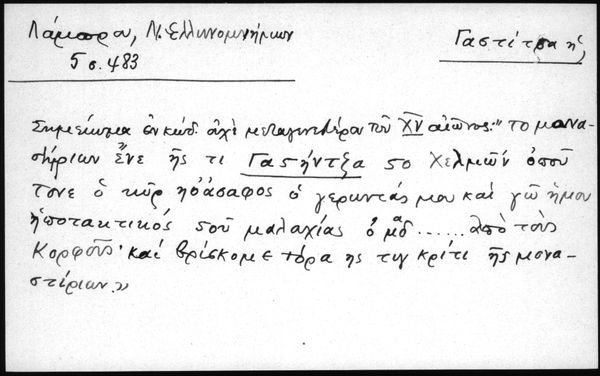 Λάμπρου, Ν. Ελληνομνήμων
5 σ. 483
Γαστίτσα ἡ
Σημείωμα ἐν κώδ. ὀχὶ μεταγενεστέρου τοῦ XV αἰῶνος: "το μονα-
στήριων ἔνε ἦς τι Γαστήντζα 50 Χελμών ὁποῦ
τονε ὁ κῦρ ηοάσαφος ὁ γεροντάς μου καὶ γῶ ἤμου
ἡποτακτικός τοῦ μαλαχίας ὁ μαδ ...... ἀπὸ τοὺς
Κορφοῦς· καὶ βρίσκομε τόρα ης τιγ κρίτι ἦς μονα-
στίριων."